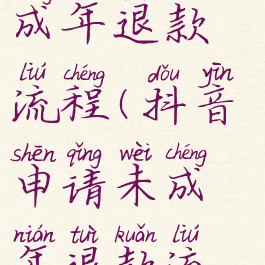 成年退款
liú chéng dǒu yīn
流程(抖音
shēn qǐng wèi chéng
申请未成
nián tuì kuǎn liú
年退款流